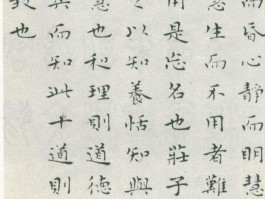 而昏心靜而明慧
慧生而不用者難
用是忘名也莊子
以知養恬知與
慧也和理則道德
而知此十道則
也